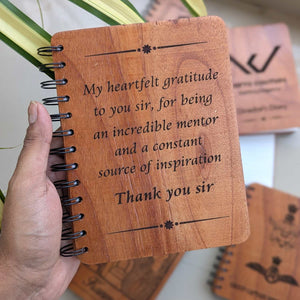 My heartfelt gratitude
to you sir, for being
an incredible mentor
and a constant
source of inspiration
Thank you sir